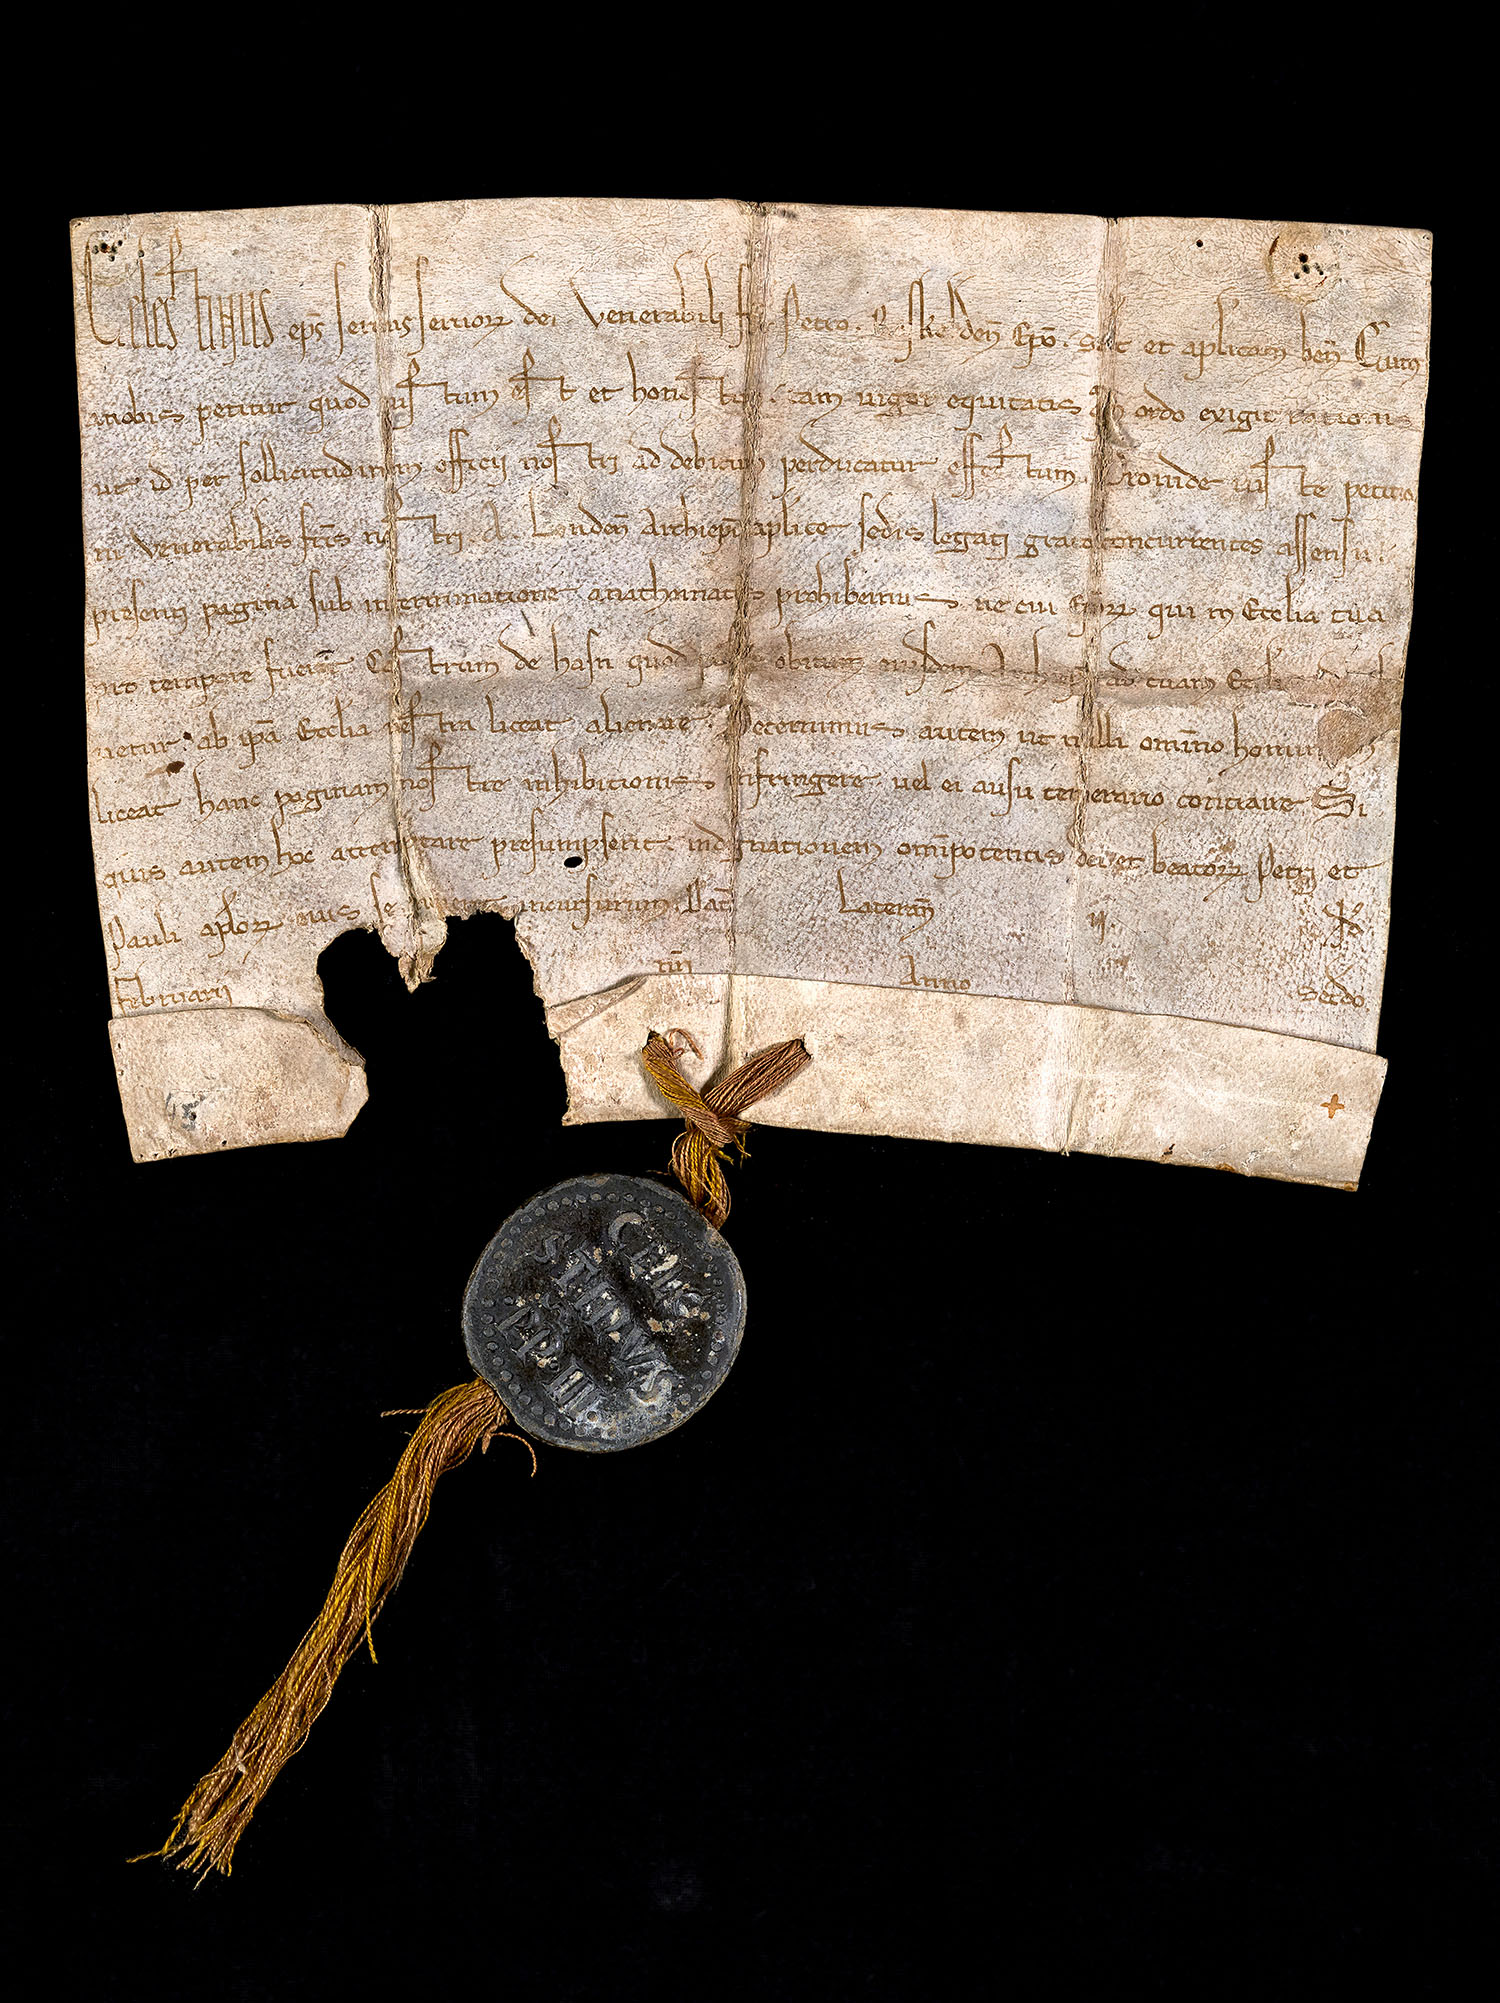 Celestinus ep̄s seruus seruorꝝ dei Venerabili fr̄i Petro Roskilden̄ Ep̄o. sal̄t et ap̄licam ben̄ Cum
anobis petitur quod iustum est et honestum. tam uigor equitatis qm̄ ordo exigit rationis
ut id per sollicitudinem officii nostri ad debitum perducatur effectum. Proinde uiste petitio
ni venerabilis fr̄is nostri. A. Lunden̄ Archiepī ap̄lice sedis legati grato concurrentes assensu.
presenti pagina sub interminatione anathematis prohibemus ne cui Ep̄orꝝ qui in Eccl̄ia tua
pro tempore fuerint Castrum de hafn quod post obitum eiusdem Archiepī ad tuam Eccl̄iam
uetur. ab ip̄a Eccl̄ia uestra liceat alienare. Decernimus autem ut nulli omnīno hominum
liceat hanc paginam nostre inhibitionis infringere uel ei ausu temerario contraire Si
quis autem hoc attemptare presumpserit indignationem om̄ipotentis dei et beatorꝝ Petri et
Pauli ap̄lorꝝ eius se incursurum. Dat̄ Lateran̄ ij. k̄l
februarii n̄ri Anno Secdo
CELES
STINVS
PP. III.